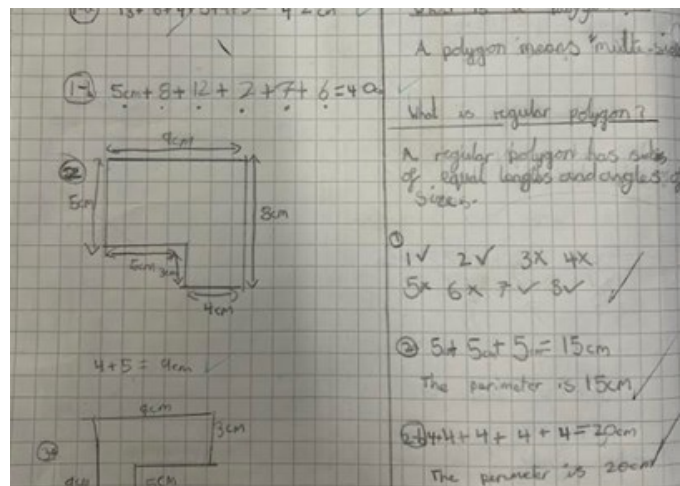 5cm + 8 + 12 + 2 + 7 + 6 = 40
9cm
2
5cm
8cm
5cm
3cm
4cm
4 + 5 = 9cm
9cm
3cm
A polygon means "multi-
What is regular polygon?
A regular polygon has sides
of equal lengths and angles
sizes.
1
1✓ 2✓ 3x 4x
5x 6x 7✓ 8✓
2 5 + 5 + 5 = 15cm
The perimeter is 15cm
4+4+4+4+4=20cm
The perimeter is 20cm